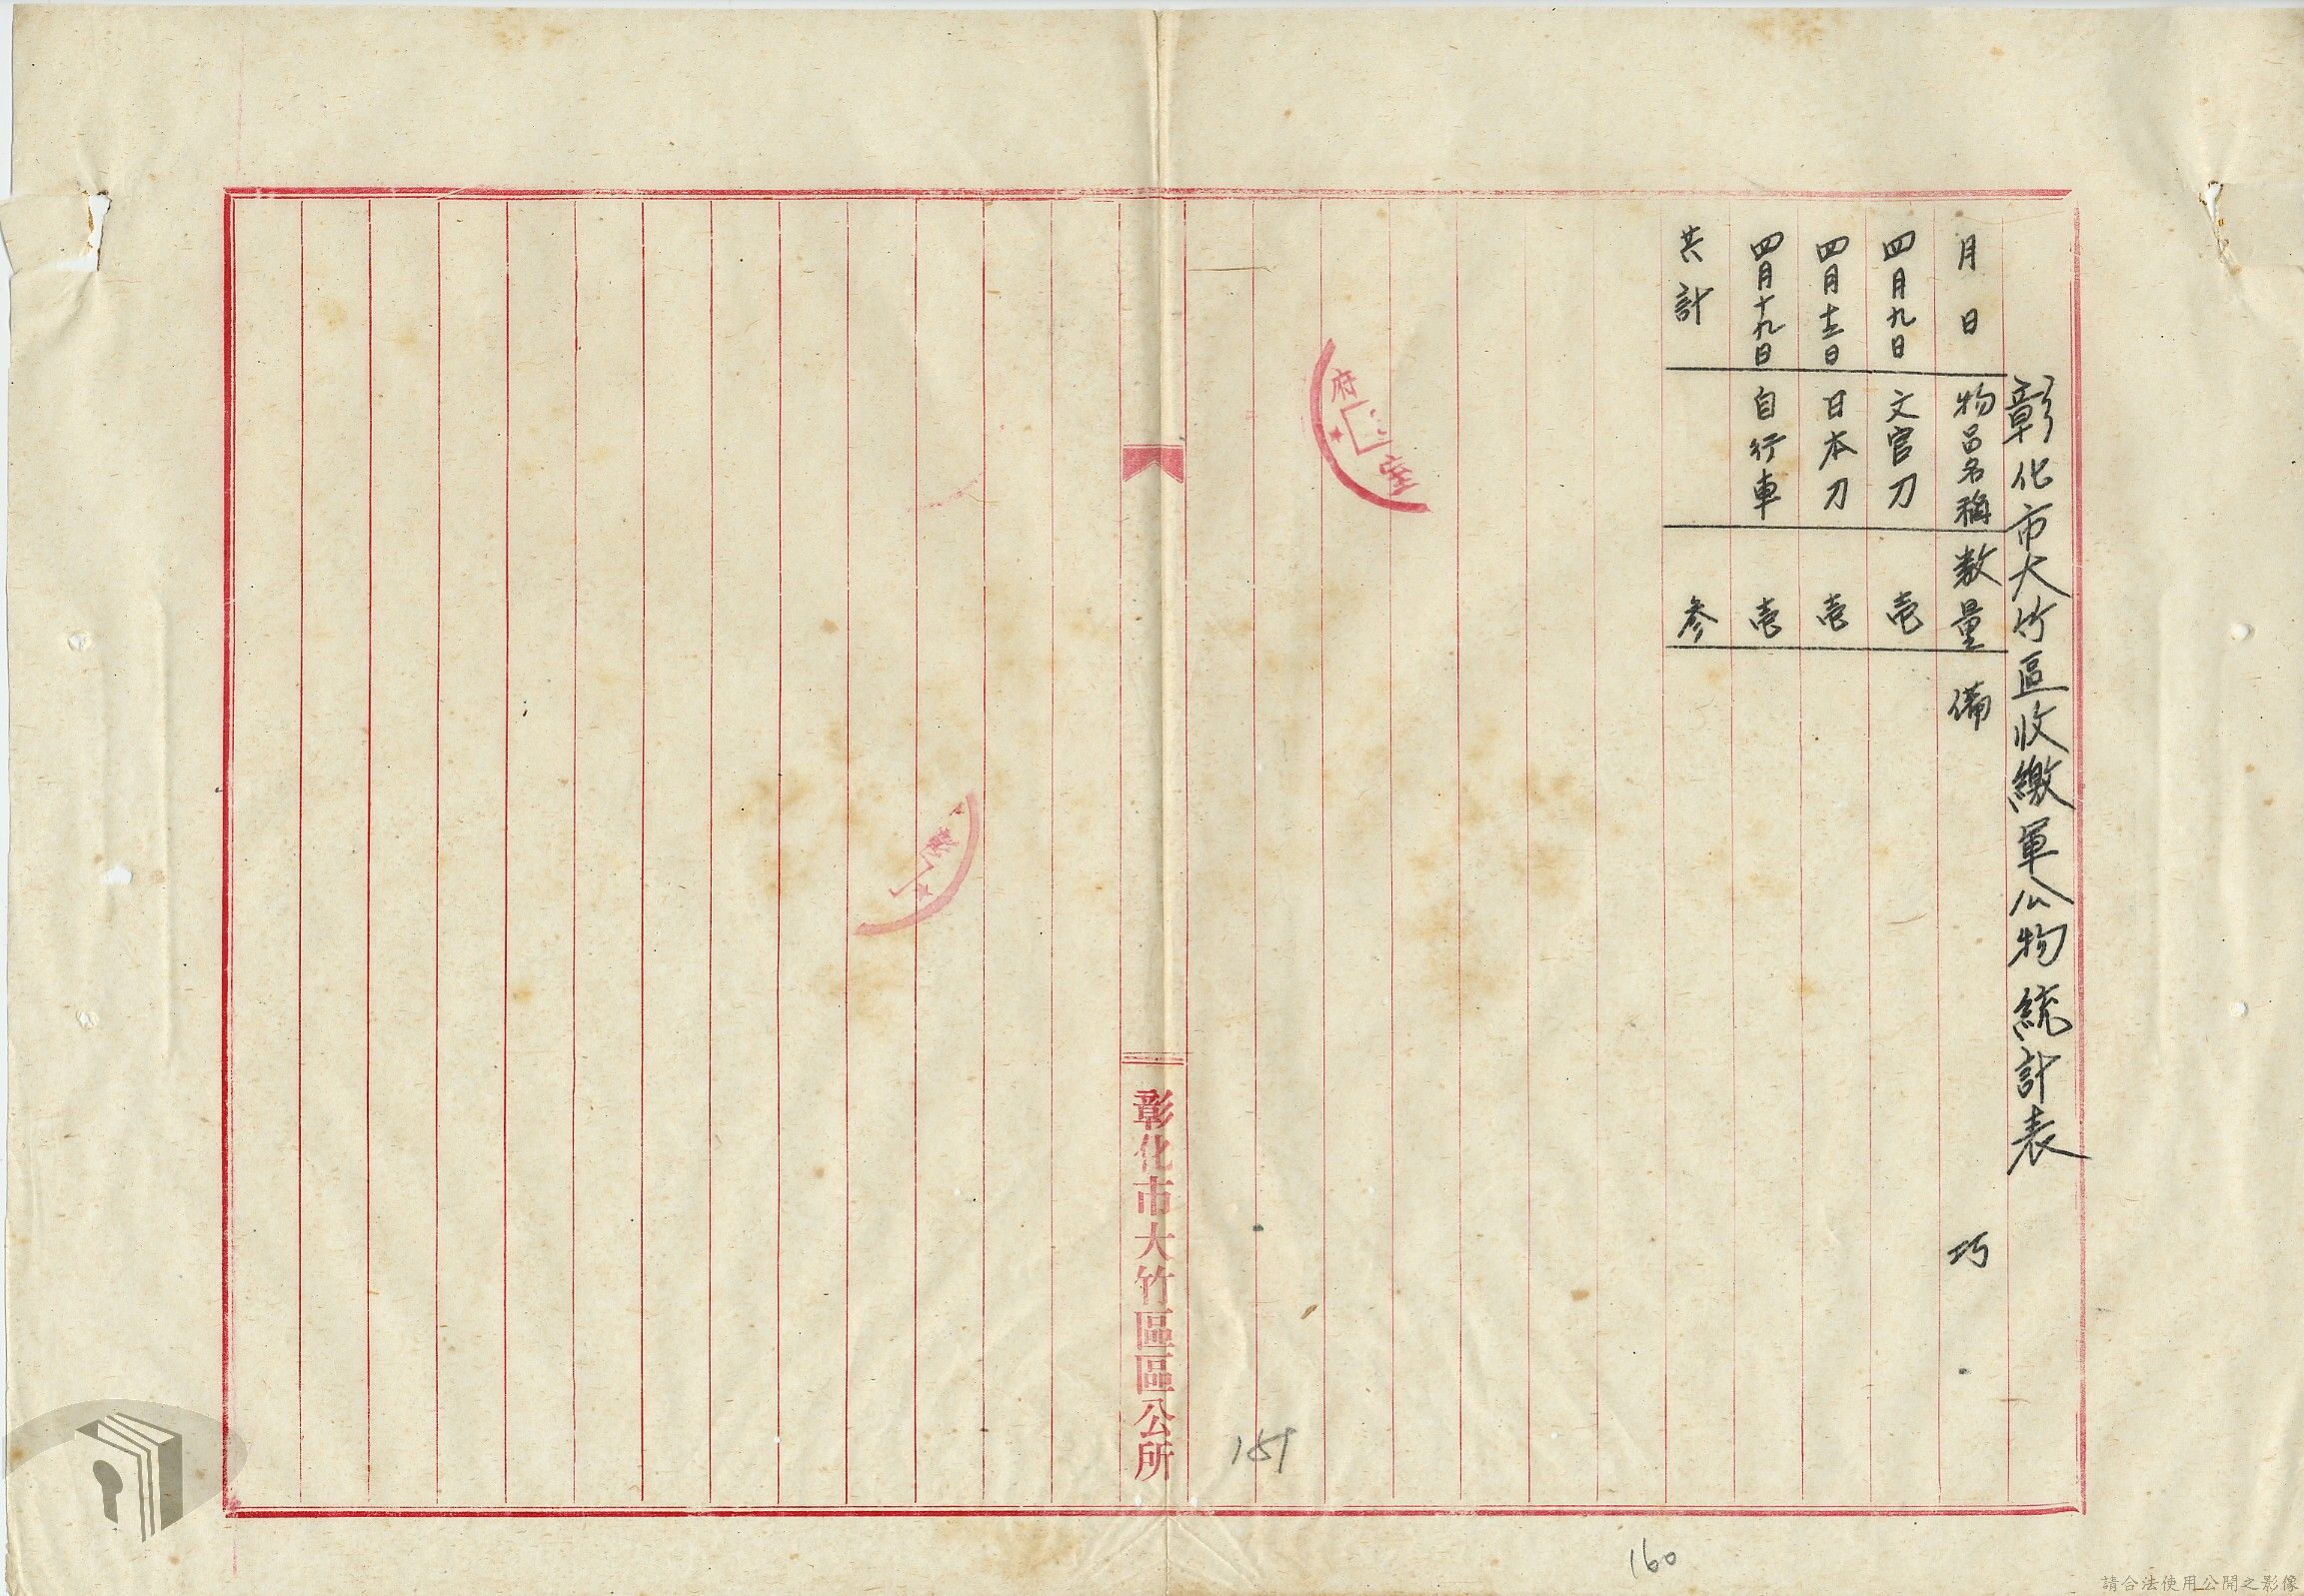 彰化市大竹區收繳軍公物統計表
月日 物品名稱 数量 備巧
四月九日 文官刀 壱
四月十三日 日本刀 壱
四月十九日 自行車 壱
共計 参
府
室
彰化市大竹區區公所
159
160
請合法使用公開之影像